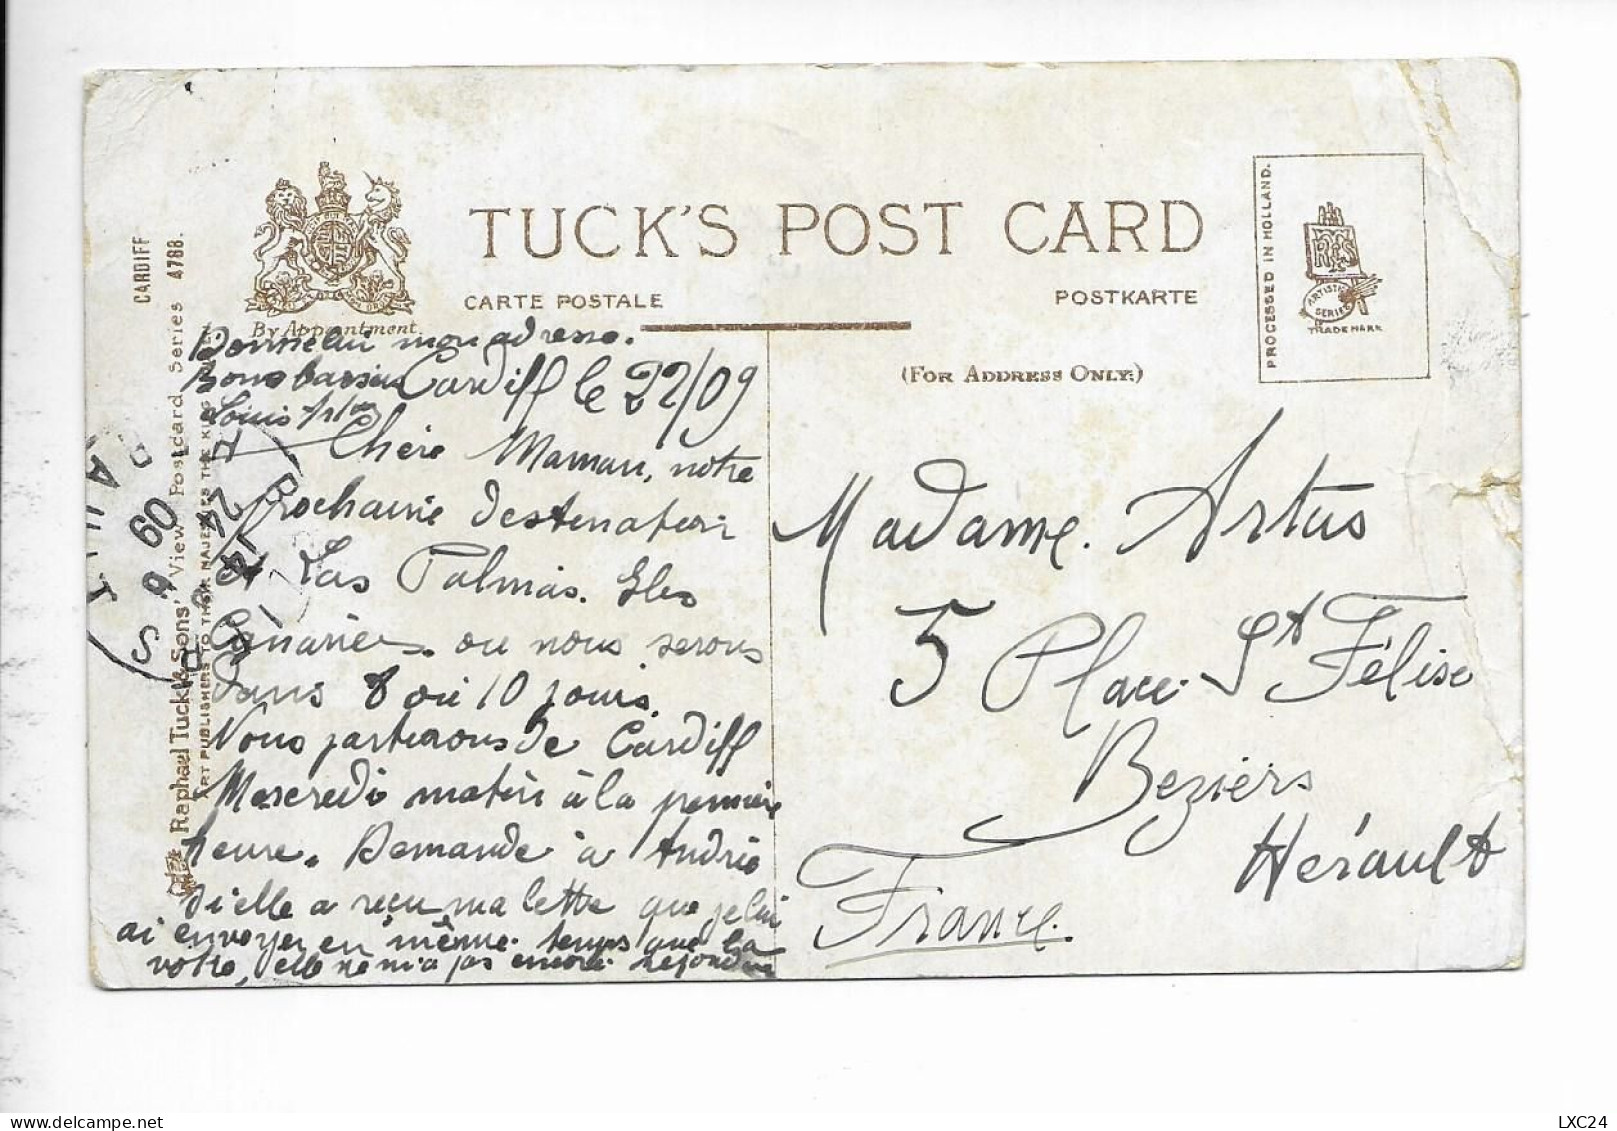 TUCK'S POST CARD
CARTE POSTALE
POSTKARTE
By Appointment.
(FOR ADDRESS ONLY.)
PROCESSED IN HOLLAND.
ARTISTIC
SERIES
TRADE MARK
CARDIFF
Raphael Tuck & Sons' View Postcard Series 4788.
ART PUBLISHERS TO THEIR MAJESTIES THE KING
Donne lui mon adresse.
Cardiff le 22/09
Louis Artus
Chère Maman, notre
Prochaine destination
est Las Palmas. Iles
Canaries. ou nous serons
Dans 8 ou 10 jours.
Nous partirons de Cardiff
Mercredi matin à la première
heure. Demande à Andrée
si elle a reçu ma lettre que je lui
ai envoyer en même temps que la
votre, elle ne m'a pas encore répondu
Madame. Artus
5 Place St Félise
Beziers
Hérault
France.
24
09
LXC24